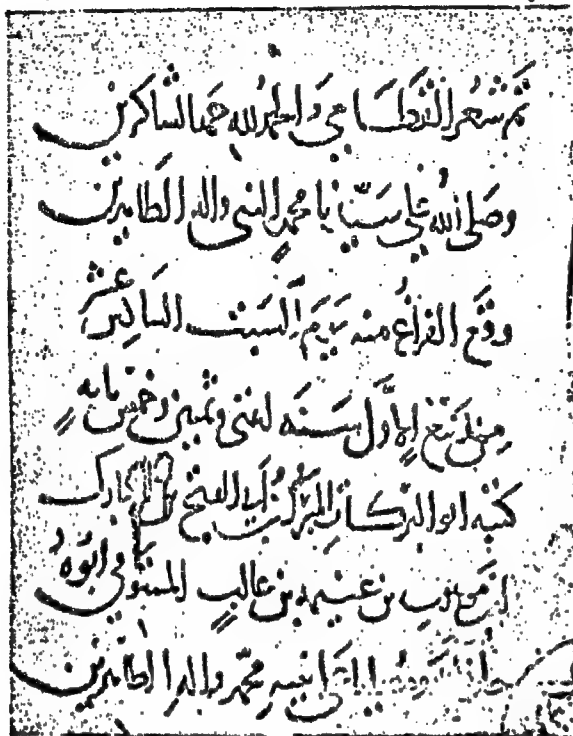 تم شعر القطامي والحمد لله حمد الشاكرين
وصلى الله على سيدنا محمد النبي واله الطاهرين
وقع الفراغ منه يوم السبت السادس عشر
من ربيع الاول سنه اثني وثمنين وخمس مايه
كتبه ابو البركات المبرك بن ابي الفتح بن المبارك
بن غالب المستوفي ابوه
محمد واله الطاهرين